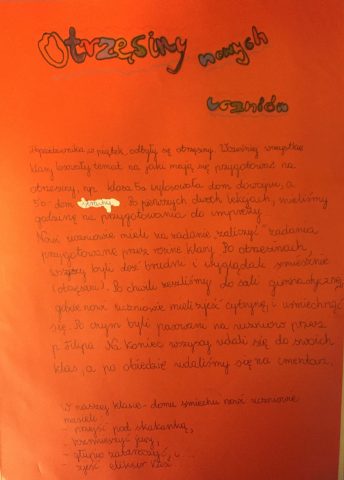 Otrzęsiny nowych
uczniów
października, w piątek, odbyły się otrzęsiny. Wcześniej wszystkie
klasy losowały temat na jaki mają się przygotować na
otrzęsiny, np. klasa 5a wylosowała dom dowcipu, a
5c - dom Po pierwszych dwóch lekcjach, mieliśmy
godzinę na przygotowania do imprezy.
Nowi uczniowie mieli na zadanie zaliczyć zadania
przygotowane przez różne klasy. Po otrzęsinach,
wszyscy byli dość brudni i wyglądali śmiesznie
(otrzęśieni). Po chwili zeszliśmy do sali gimnastycznej,
gdzie nowi uczniowie mieli zjeść cytrynę, i uśmiechnąć
się. Po czym byli pasowani na ucznia przez
p. Filipa. Na koniec wszyscy udali się do swoich
klas, a po obiedzie udaliśmy się na cmentarz.
W naszej klasie - domu śmiechu nowi uczniowie
musieli:
- przejść pod skakanką,
- rozśmieszyć jury,
- głupio zatańczyć, i
- zjeść eliksir